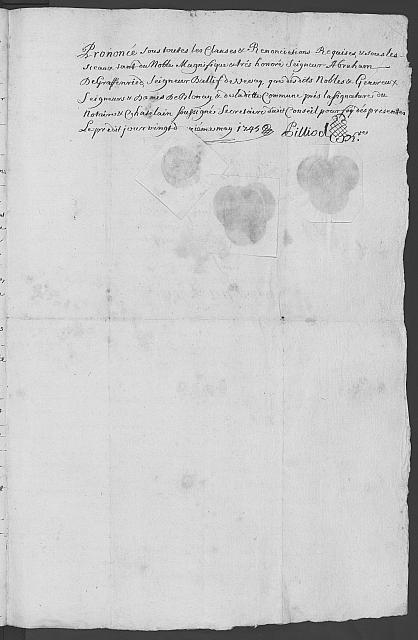 Prononcé sous toutes les Clauses & Renonciations Requises, & sous les
Sceaux tant du Noble Magnifique & très honoré Seigneur Abraham
DeGraffenried, Seigneur Ballif de Vevey, que desdits Nobles & Genereux
Seigneurs & Dames de Blonay, & de ladite Commune, près la signature du
Notaire & Chatelain soussigné Secretaire dudit Conseil pour foy des presentes
Le prédit jour vingt may 1745 Pilliod